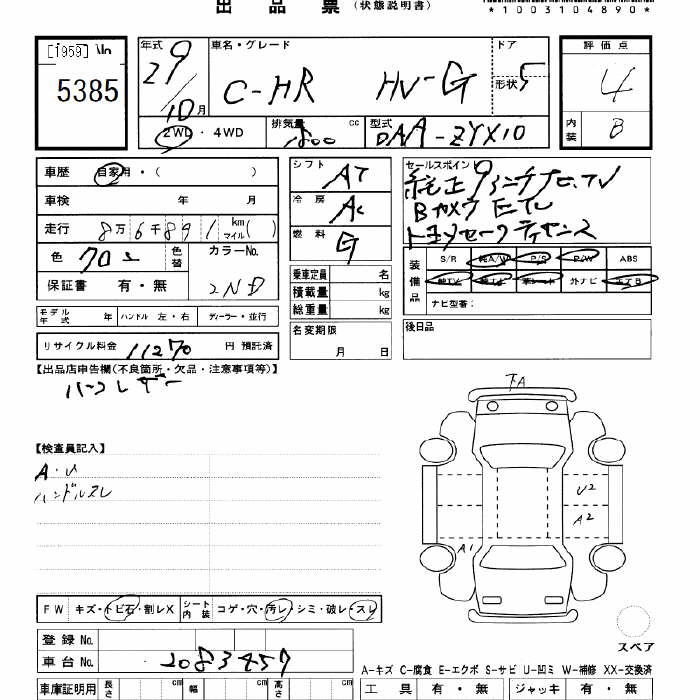 出品票（状態説明書）
*1003104890*
[1959]
5385
年式 29 10月
車名・グレード C-HR HV-G
ドア形状 5
評価点 4
内装 B
2WD・4WD
排気量 1800 cc
型式 DAA-ZYX10
車歴 自家用・( )
シフト AT
セールスポイント
純正9インチナビTV
Bカメラ ETC
トヨタセーフティセンス
車検 年 月
冷房 AC
走行 8万6千891 km マイル( )
燃料 G
色 クロ2 色替 カラーNo. 2ND
保証書 有・無
乗車定員 名
積載量 kg
総重量 kg
装備品 S/R 純A/W P/S P/W ABS
純TV 外ナビ エアB
ナビ型番:
モデル年式 年 ハンドル 左・右 ディーラー・並行
名変期限 月 日
後日品
リサイクル料金 11270 円 預託済
【出品店申告欄(不良箇所・欠品・注意事項等)】
ハーフレザー
下A
【検査員記入】
A・U
ハンドルスレ
U2
A2
A1
FW キズ・トビ石・割レX シート内装 コゲ・穴・汚レ・シミ・破レ・スレ
スペア
登録No.
車台No. 2083457
A-キズ C-腐食 E-エクボ S-サビ U-凹ミ W-補修 XX-交換済
車庫証明用 長さ cm 幅 cm 高さ cm
工具 有・無 ジャッキ 有・無